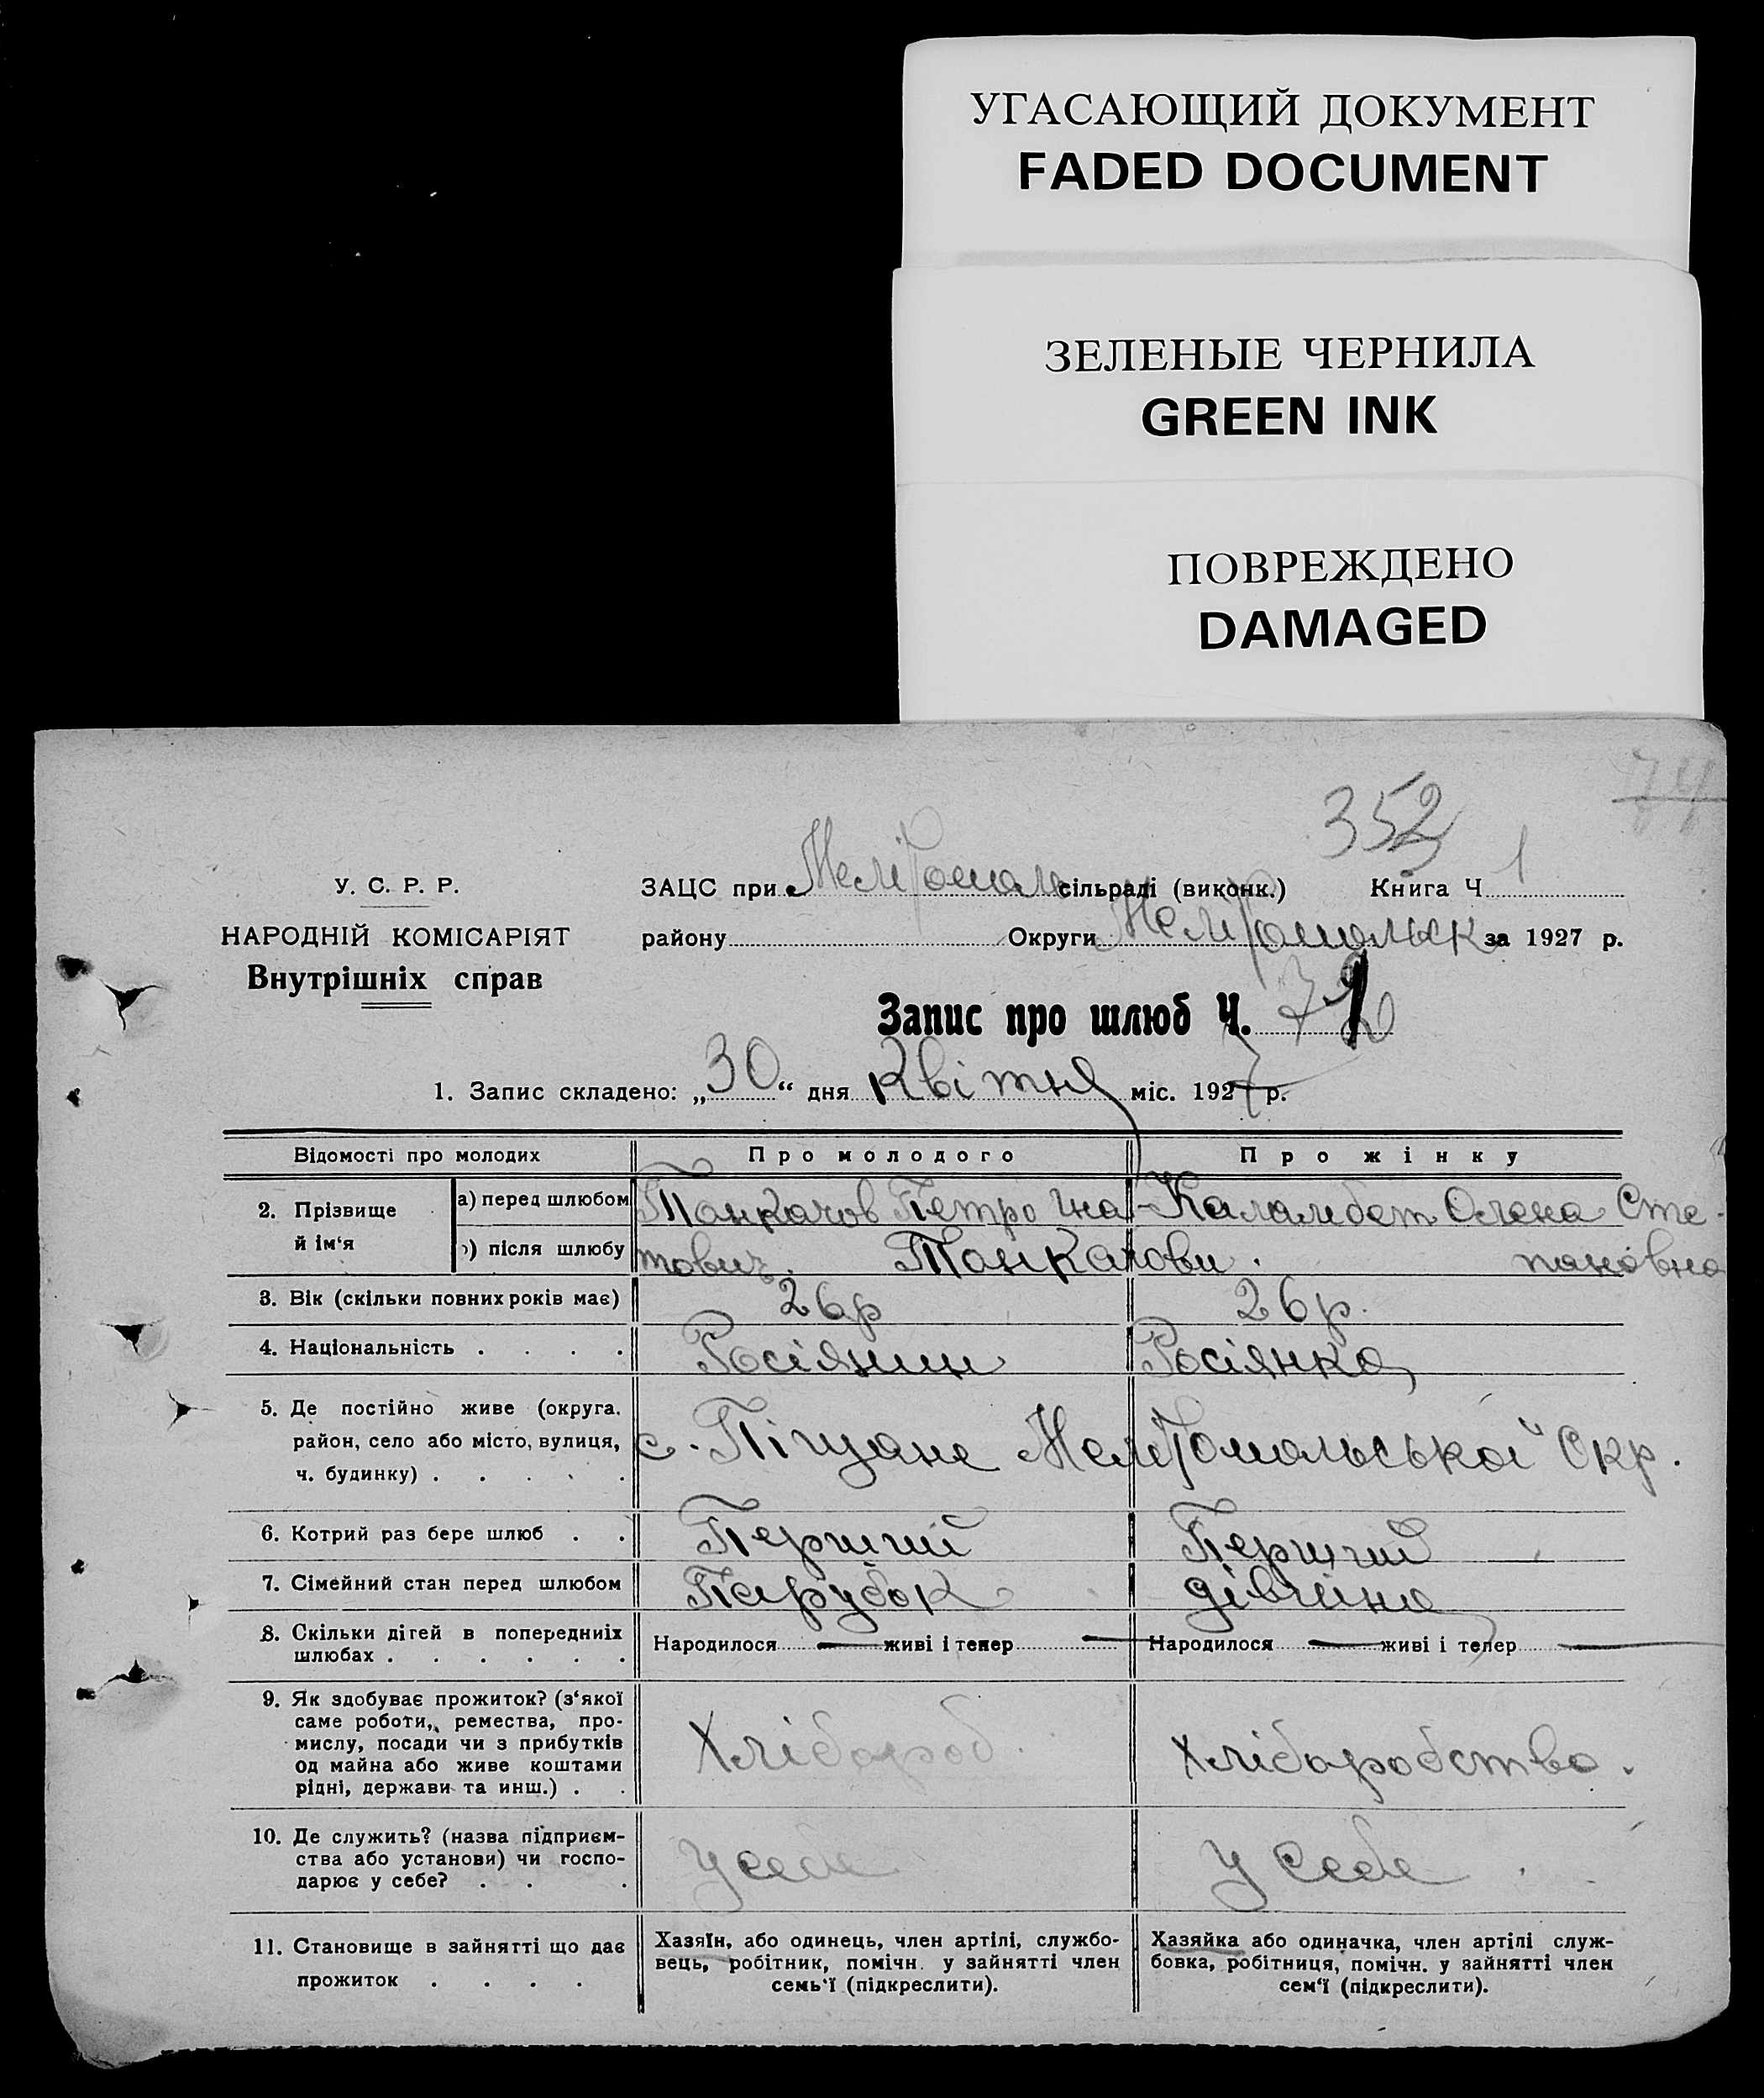 УГАСАЮЩИЙ ДОКУМЕНТ
FADED DOCUMENT
ЗЕЛЕНЫЕ ЧЕРНИЛА
GREEN INK
ПОВРЕЖДЕНО
DAMAGED
74
352
У. С. Р. Р.
ЗАЦС при Мелітополь сільраді (виконк.) Книга Ч 1
НАРОДНІЙ КОМІСАРІЯТ
району Округи Мелітопольск за 1927 р.
Внутрішніх справ
Запис про шлюб Ч. 72
1. Запис складено: „30“ дня Квітня міс. 1927 р.
Відомості про молодих Про молодого Про жінку
2. Прізвище й ім‘я
а) перед шлюбом Танкачов Петро Гна- Каламбет Олена Сте-
) після шлюбу тович. Танкачови. пановна
3. Вік (скільки повних років має) 26 р 26 р.
4. Національність . . . . Росіянин Росіянка
5. Де постійно живе (округа,
район, село або місто, вулиця, с. Піщане Мелітопольської Окр.
ч. будинку) . . . . .
6. Котрий раз бере шлюб . . Перший Перший
7. Сімейний стан перед шлюбом Парубок дівчина
8. Скільки дітей в попередніх Народилося — живі і тепер — Народилося — живі і тепер —
шлюбах . . . . . .
9. Як здобуває прожиток? (з‘якої
саме роботи, ремества, про-
мислу, посади чи з прибутків Хлібороб. Хліборобство.
од майна або живе коштами
рідні, держави та инш.) . .
10. Де служить? (назва підприєм-
ства або установи) чи госпо- У себе У себе
дарює у себе? . . .
11. Становище в зайнятті що дає
прожиток . . . .
Хазяїн, або одинець, член артілі, службо-
вець, робітник, помічн. у зайнятті член
семь‘ї (підкреслити).
Хазяйка або одиначка, член артілі служ-
бовка, робітниця, помічн. у зайнятті член
сем‘ї (підкреслити).